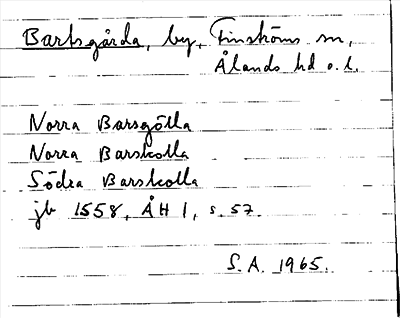 Bartsgårda, by, Finströms sn,
Ålands hd o. l.
Norra Barsgölla
Norra Barskolla
Södra Barskolla
jb 1558, ÅH 1, s. 57.
S.A. 1965.